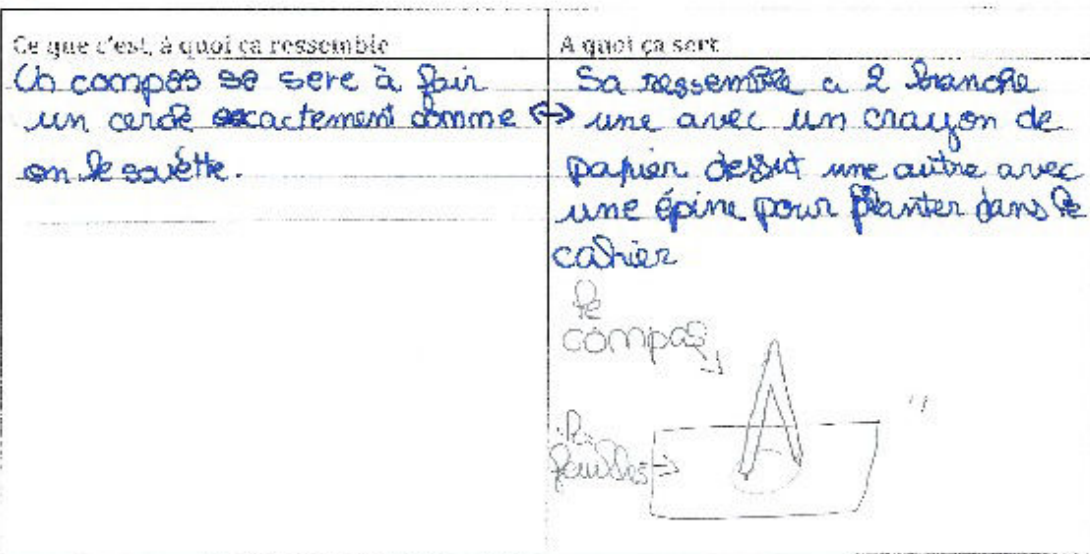 Ce que c'est, à quoi ca ressemble
Un compas se sere à fair
un cercle exactement comme
on le souètte.
A quoi ça sert
Sa ressemble a 2 branche
une avec un crayon de
papier dessut une autre avec
une épine pour planter dans le
cahier
le
compas
la
feuilles